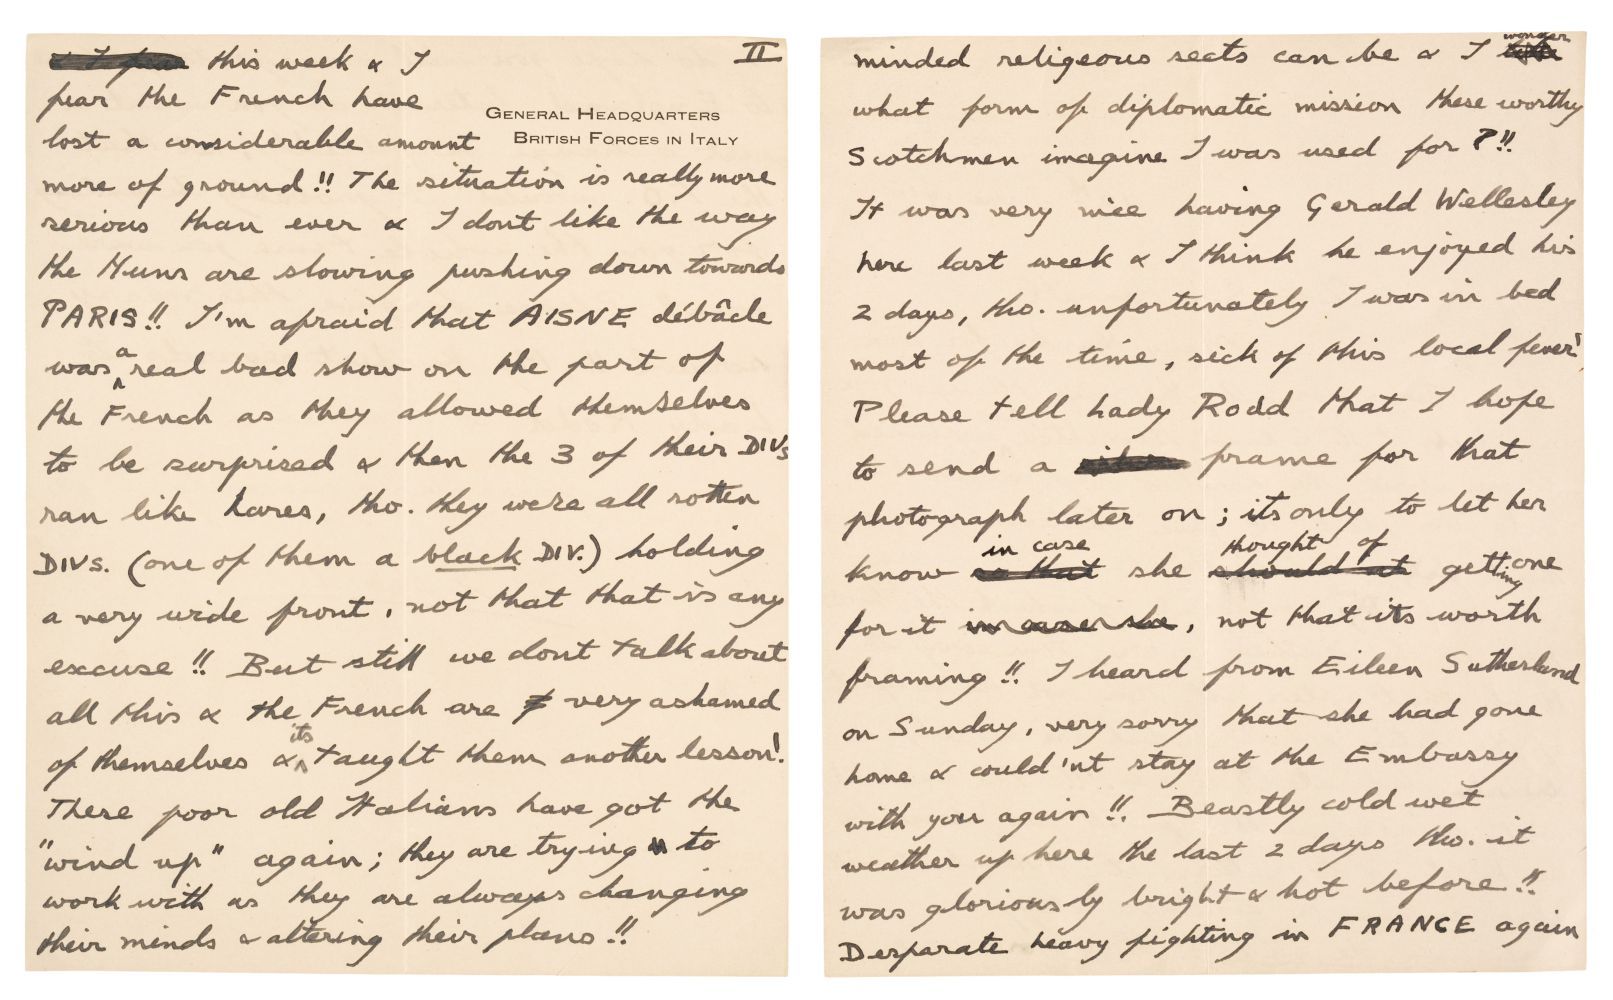 II
this week & I
fear the French have
GENERAL HEADQUARTERS
BRITISH FORCES IN ITALY
lost a considerable amount
more of ground!! The situation is really more
serious than ever & I dont like the way
the Huns are slowing pushing down towards
PARIS!! I'm afraid that AISNE débâcle
was a real bad show on the part of
the French as they allowed themselves
to be surprised & then the 3 of their DIVs
ran like hares, tho. they were all rotten
DIVs. (one of them a black DIV.) holding
a very wide front, not that that is any
excuse!! But still we dont talk about
all this & the French are very ashamed
of themselves & its taught them another lesson!
These poor old Italians have got the
"wind up" again; they are trying to
work with as they are always changing
their minds & altering their plans!!
minded religeous sects can be & I wonder
what form of diplomatic mission these worthy
Scotchmen imagine I was used for?!!
It was very nice having Gerald Wellesley
here last week & I think he enjoyed his
2 days, tho. unfortunately I was in bed
most of the time, sick of this local fever!
Please tell Lady Rodd that I hope
to send a frame for that
photograph later on; its only to let her
know in case she thought of getting one
for it, not that its worth
framing!! I heard from Eileen Sutherland
on Sunday, very sorry that she had gone
home & could'nt stay at the Embassy
with you again!! Beastly cold wet
weather up here the last 2 days tho. it
was gloriously bright & hot before!!
Desparate heavy fighting in FRANCE again